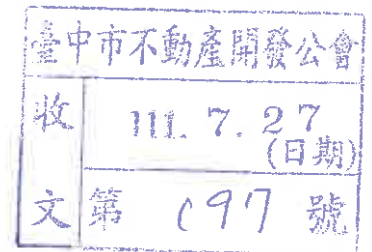 臺中市不動產開發公會
收 111. 7. 27
(日期)
文 第 697 號